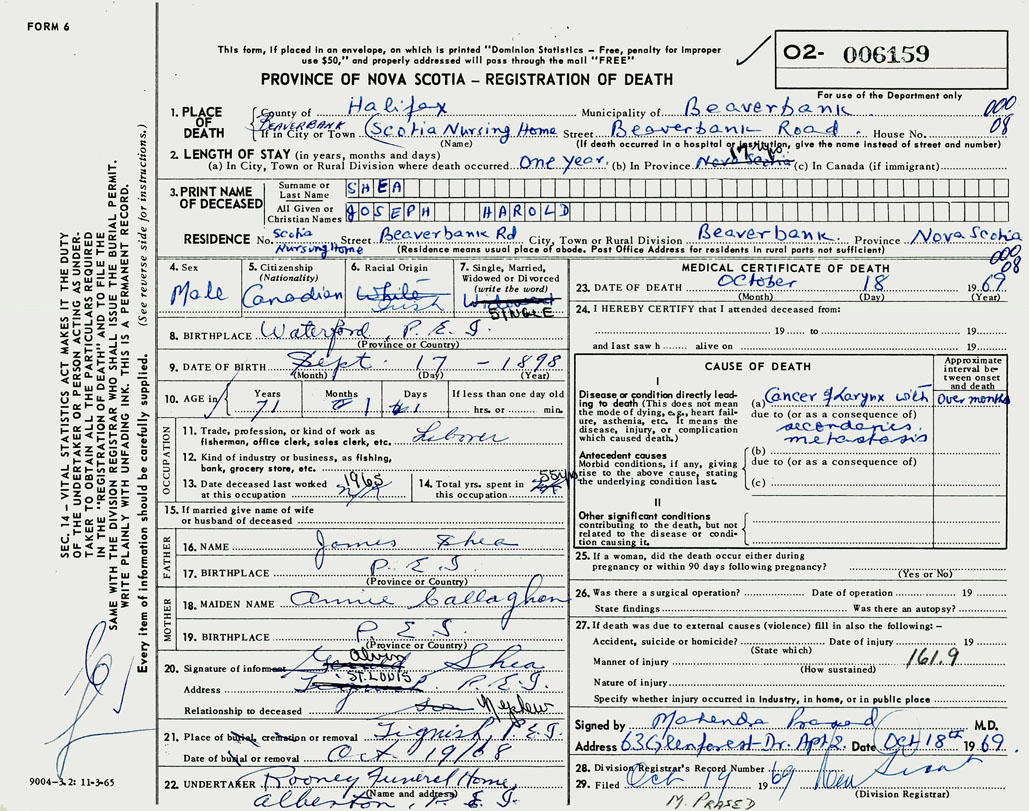 FORM 6
This form, if placed in an envelope, on which is printed "Dominion Statistics – Free, penalty for improper
use $50," and properly addressed will pass through the mail "FREE"
PROVINCE OF NOVA SCOTIA – REGISTRATION OF DEATH
O2- 006159
For use of the Department only
1. PLACE OF DEATH County of Halifax Municipality of Beaverbank 000
BEAVERBANK If in City or Town (Scotia Nursing Home Street Beaverbank Road. House No. 08
(Name) (If death occurred in a hospital or institution, give the name instead of street and number)
2. LENGTH OF STAY (in years, months and days) 17 yrs
(a) In City, Town or Rural Division where death occurred One year. (b) In Province Nova Scotia (c) In Canada (if immigrant)
3. PRINT NAME OF DECEASED Surname or Last Name SHEA
All Given or Christian Names JOSEPH HAROLD
RESIDENCE No. Scotia Nursing Home Street Beaverbank Rd City, Town or Rural Division Beaverbank. Province Nova Scotia
(Residence means usual place of abode. Post Office Address for residents in rural parts not sufficient) 000
08
4. Sex
Male
5. Citizenship
(Nationality)
Canadian
6. Racial Origin
White
Irish
7. Single, Married,
Widowed or Divorced
(write the word)
Widowed
SINGLE
8. BIRTHPLACE Waterford, P.E.I.
(Province or Country)
9. DATE OF BIRTH Sept. 17 - 1898
(Month) (Day) (Year)
10. AGE in Years Months Days If less than one day old
71 1 1 hrs. or min.
OCCUPATION
11. Trade, profession, or kind of work as
fisherman, office clerk, sales clerk, etc. Laborer
12. Kind of industry or business, as fishing,
bank, grocery store, etc.
13. Date deceased last worked
at this occupation 1965
14. Total yrs. spent in
this occupation 55 yrs
15. If married give name of wife
or husband of deceased
FATHER
16. NAME James Shea
17. BIRTHPLACE P.E.I.
(Province or Country)
MOTHER
18. MAIDEN NAME Annie Callaghan
19. BIRTHPLACE P.E.I.
(Province or Country)
20. Signature of informant Alvin Shea
Address ST. LOUIS P.E.I.
Relationship to deceased Son Nephew
21. Place of burial, cremation or removal Tignish, P.E.I.
Date of burial or removal Oct. 19/68
22. UNDERTAKER Rooney Funeral Home,
(Name and address)
Alberton, P.E.I.
MEDICAL CERTIFICATE OF DEATH
23. DATE OF DEATH October 18 1969
(Month) (Day) (Year)
24. I HEREBY CERTIFY that I attended deceased from:
19 to 19
and last saw h alive on 19
CAUSE OF DEATH
Approximate interval between onset and death
I
Disease or condition directly leading to death (This does not mean the mode of dying, e.g., heart failure, asthenia, etc. It means the disease, injury, or complication which caused death.)
(a) Cancer of Larynx with Over months
due to (or as a consequence of)
secondaries.
metastasis
Antecedent causes
Morbid conditions, if any, giving rise to the above cause, stating the underlying condition last.
(b)
due to (or as a consequence of)
(c)
II
Other significant conditions
contributing to the death, but not related to the disease or condition causing it.
25. If a woman, did the death occur either during
pregnancy or within 90 days following pregnancy?
(Yes or No)
26. Was there a surgical operation? Date of operation 19
State findings Was there an autopsy?
27. If death was due to external causes (violence) fill in also the following: –
Accident, suicide or homicide? Date of injury 19
(State which)
Manner of injury 161.9
(How sustained)
Nature of injury
Specify whether injury occurred in industry, in home, or in public place
Signed by Mahendra Prasad M.D.
Address 63 Glenforest Dr. Apt 2. Date Oct 18th 1969.
28. Division Registrar's Record Number
29. Filed Oct 19 1969
(Division Registrar)
M. PRASED
SEC. 14 – VITAL STATISTICS ACT MAKES IT THE DUTY
OF THE UNDERTAKER OR PERSON ACTING AS UNDER-
TAKER TO OBTAIN ALL THE PARTICULARS REQUIRED
IN THE "REGISTRATION OF DEATH" AND TO FILE THE
SAME WITH THE DIVISION REGISTRAR WHO SHALL ISSUE THE BURIAL PERMIT.
WRITE PLAINLY WITH UNFADING INK. THIS IS A PERMANENT RECORD.
Every item of information should be carefully supplied. (See reverse side for instructions.)
9004-3.2: 11-3-65